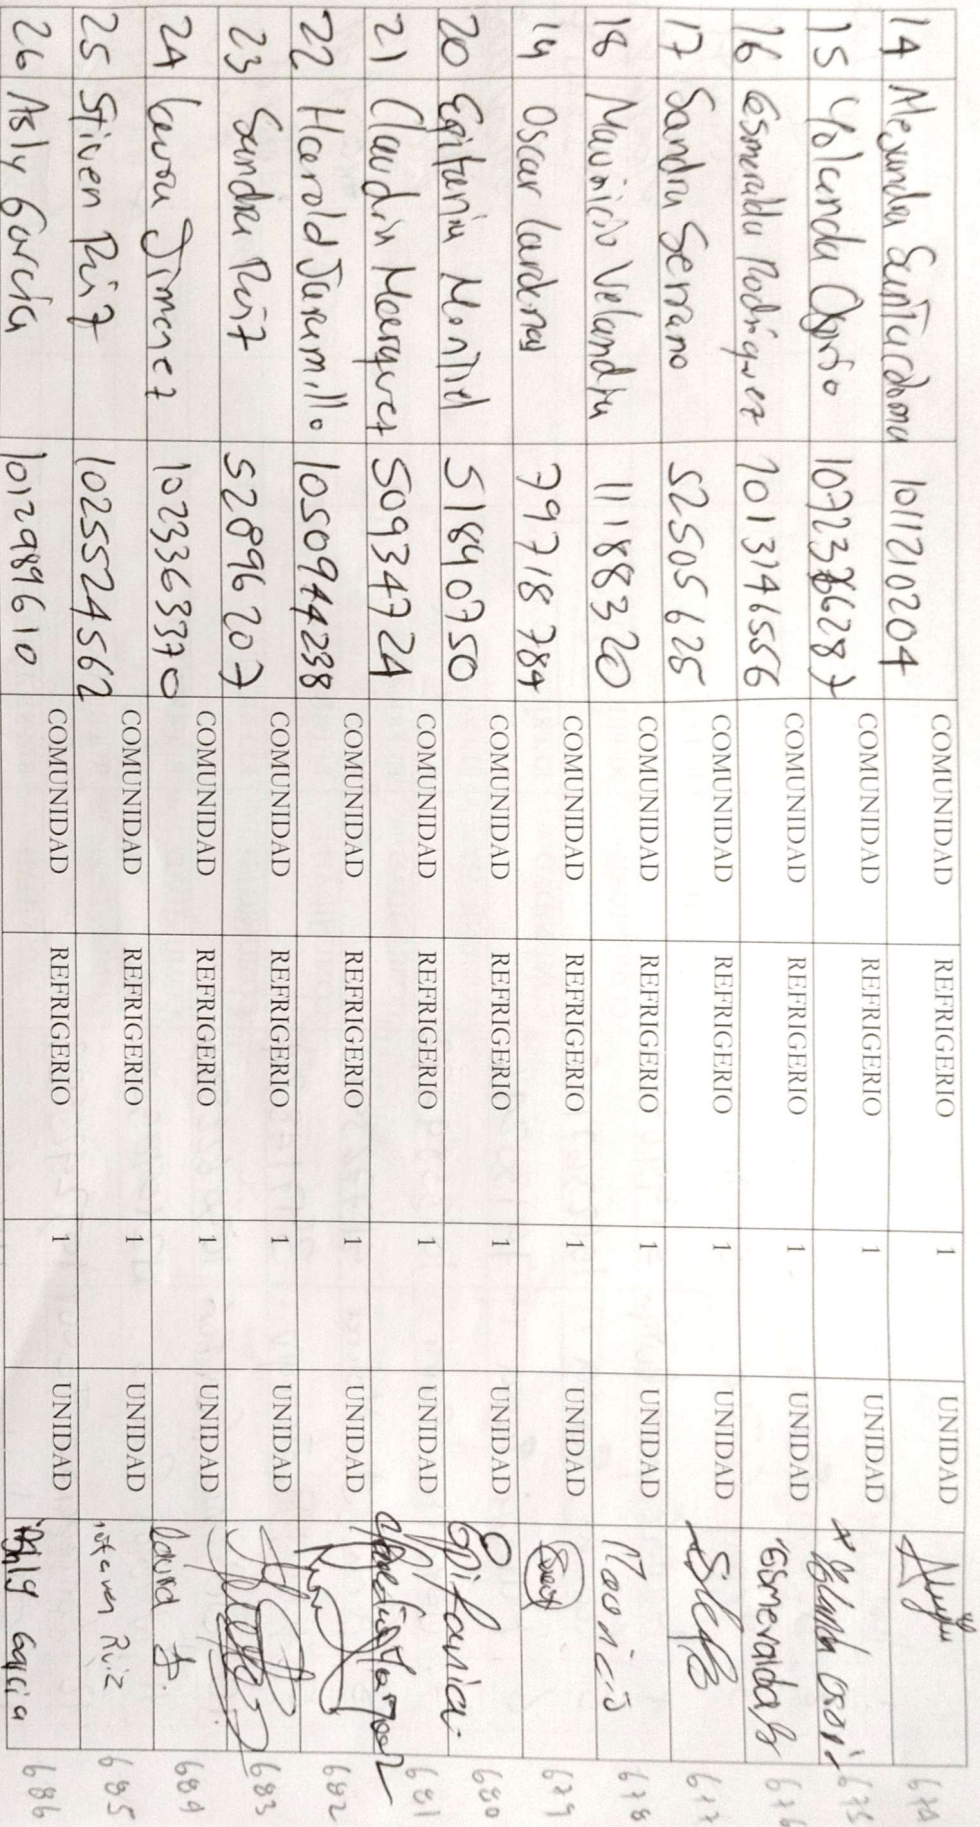 14 Alexandra Santacoloma 1011210204 COMUNIDAD REFRIGERIO 1 UNIDAD 674
15 Yolanda Osorio COMUNIDAD REFRIGERIO 1 UNIDAD 675
16 Esmeralda Rodriguez 1013146556 COMUNIDAD REFRIGERIO 1 UNIDAD Esmeralda 676
17 Sandra Serrano 52505625 COMUNIDAD REFRIGERIO 1 UNIDAD 677
18 Mauricio Velandia 11118320 COMUNIDAD REFRIGERIO 1 UNIDAD Mauricio 678
19 Oscar Cardenas 799718784 COMUNIDAD REFRIGERIO 1 UNIDAD 679
20 Epifania Montiel 51840750 COMUNIDAD REFRIGERIO 1 UNIDAD Epifania 680
21 Claudia Marquez 50934724 COMUNIDAD REFRIGERIO 1 UNIDAD 681
22 Harold Jaramillo 1050944238 COMUNIDAD REFRIGERIO 1 UNIDAD 682
23 Sandra Ruiz 52896207 COMUNIDAD REFRIGERIO 1 UNIDAD 683
24 Laura Jimenez 1023363370 COMUNIDAD REFRIGERIO 1 UNIDAD Laura J. 684
25 Stiven Ruiz 1025524562 COMUNIDAD REFRIGERIO 1 UNIDAD Ruiz 685
26 Asly Garcia 1012989610 COMUNIDAD REFRIGERIO 1 UNIDAD Asly Garcia 686